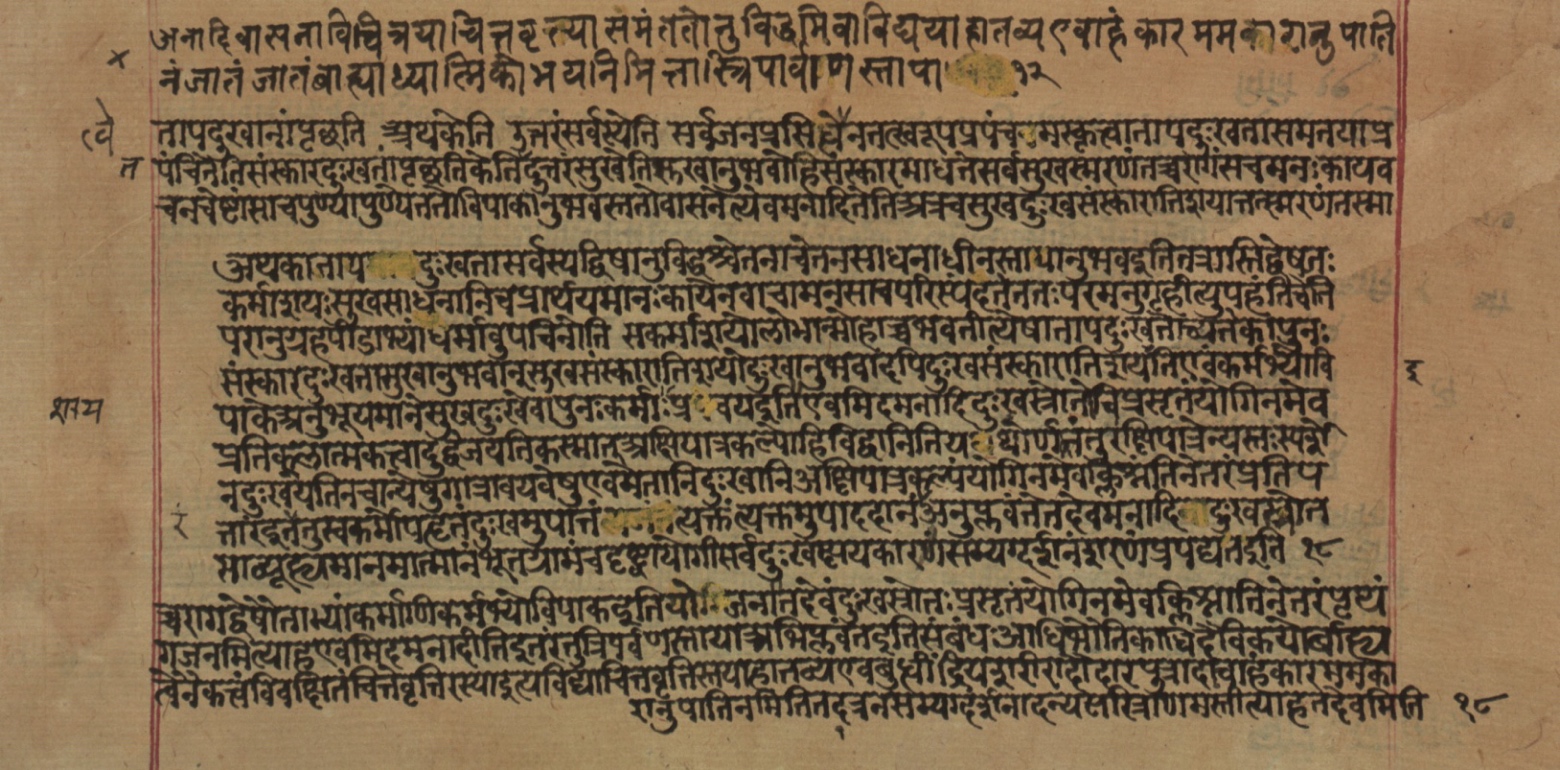 अनादिवासनाविचित्रया चित्तवृत्त्या समंततोनुविद्धमिवाविद्यया हातव्य एवाहंकारममकारानुपाति
नं जातं जातं बाह्याध्यात्मिकोभयनिमित्तास्त्रिपर्वाणस्तापा १२
तापदुखानां पृछति अथकेति उत्तरं सर्वस्येति सर्वजनप्रसिद्धेन तत्स्वरूपप्रपंचमकृत्वा तापदुःखता समतयाप्र
पंचितेति संस्कारदुःखतां पृछति केति उत्तरं सुखेति सुखानुभवोहि संस्कारमाधत्ते सच सुखस्मरणं तच्च रागं सच मनःकायव
चनचेष्टां साच पुण्यापुण्ये ततो विपाकानुभवस्ततो वासनेत्येवमनादितेति अत्रच सुखदुःखसंस्कारातिशयात्तत्स्मरणं तस्मा
अथ का ताप दुःखता सर्वस्य द्वेषानुविद्धश्चेतनाचेतनसाधनाधीनस्तापानुभव इति तत्रास्ति द्वेषजः
कर्माशयः सुखसाधनानि च प्रार्थयमानः कायेन वाचा मनसा च परिस्पंदते ततः परमनुगृह्णात्युपहंति चेति
परानुग्रहपीडाभ्यां धर्माधर्मावुपचिनोति स कर्माशयो लोभान्मोहाच्च भवतीत्येषा तापदुःखतोच्यते का पुनः
संस्कारदुःखता सुखानुभवात्सुखसंस्कारातिशयो दुःखानुभवादपि दुःखसंस्कारातिशय इति एवं कर्मभ्यो वि
शय
पाकेअनुभूयमाने सुखे दुःखे वा पुनः कर्मा प्रचय इति एवमिदमनादि दुःखस्रोतो विप्रसृतं योगिनमेव
प्रतिकूलात्मकत्वादुद्वेजयति कस्मात् अक्षिपात्रकल्पो हि विद्वानिति यथोर्णातंतुरक्षिपात्रे न्यस्तः स्पर्शे
न दुःखयति न चान्येषु गात्रावयवेषु एवमेतानि दुःखानि अक्षिपात्रकल्पं योगिनमेव क्लिश्नंति नेतरं प्रतिप
त्तारं इतरंतु स्वकर्मोपहृतं दुःखमुपात्तं त्यक्तं त्यक्तमुपाददानं अनुप्लवंते तदेवमनादि दुःखस्रोत
साव्युह्यमानमात्मानं भूतग्रामं च दृष्ट्वा योगी सर्वदुःखक्षयकारणं सम्यग्दर्शनं शरणं प्रपद्यत इति १८
च्च रागद्वेषौ ताभ्यां कर्माणि कर्मभ्यो विपाक इति योजना तदेवं दुःखस्रोतः प्रसृतं योगिनमेव क्लिश्नाति नेतरं पृथ
ग्जनमित्याह एवमिदमनादीति इतरंतु त्रिपर्वाणस्तापा अभिप्लवंत इति संबंधः आधिभौतिकाधिदैविकयोर्बाह्य
त्वेनैकत्वं विवक्षितं चित्ते वृत्तिरस्या इत्यविद्या चित्तवृत्तिस्तया हातव्य एव बुद्धींद्रियशरीरादौ दारपुत्रादौ चाहंकारममका
रानुपातिनमिति तदत्र न सम्यग्दर्शनादन्यत्परित्राणमस्तीत्याह तदेवमिति १८